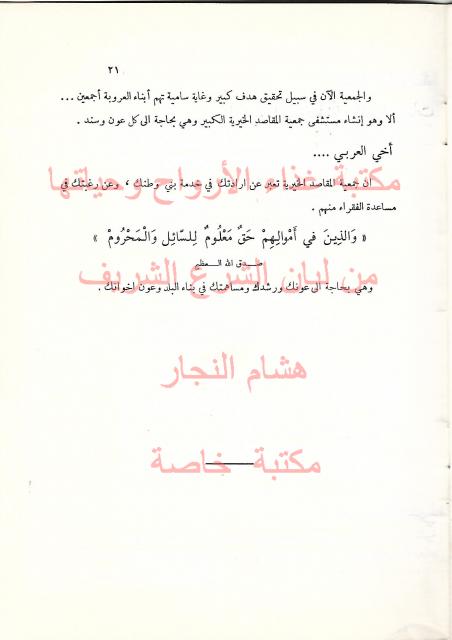 ٢١
والجمعية الآن في سبيل تحقيق هدف كبير وغاية سامية تهم أبناء العروبة أجمعين ...
ألا وهو إنشاء مستشفى جمعية المقاصد الخيرية الكبير وهي بحاجة الى كل عون وسند .
أخي العربي ....
مكتبة غذاء الأرواح وحياتها
ان جمعية المقاصد الخيرية تعبر عن ارادتك في خدمة بني وطنك ، وعن رغبتك في
مساعدة الفقراء منهم .
« وَالذِينَ في أَمْوالِهِمْ حَقٌ مَعْلُومٌ لِلسّائِلِ وَالْمَحْرُومْ »
صدق الله العظيم
من لبان الشرع الشريف
وهي بحاجة الى عونك ورشدك ومساهمتك في بناء البلد وعون اخوانك .
هشام النجار
مكتبة خاصة